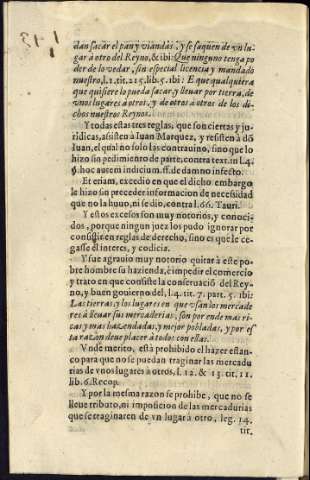 dan sacar el pan y viandas, y se saquen de vn lu-
gar à otro del Reyno, & ibi: Que ninguno tenga po
der de lo vedar, sin especial licencia y mandado
nuestro, l.1.tit.215.lib.5.ibi: E que qualquiera
que quisiere lo pueda sacar, y lleuar por tierra, de
vnos lugares à otros, y de otros à otros de los di-
chos nuestros Reynos.
Y todas estas tres reglas, que son ciertas y ju-
ridicas, assisten a Iuan Marquez, y resisten à dõ
Iuan, el qual no solo las contrauino, sino que lo
hizo sin pedimiento de parte, contra text. in l.4.
§. hoc autem indicium. ff. de damno infecto.
Et etiam, excedio en que el dicho embargo
le hizo sin preceder informacion de necesidad
que no la huuo, ni se dio, contra l.66. Tauri.
Y estos excesos son muy notorios, y conoci-
dos, porque ningun juez los pudo ignorar por
consistir en reglas de derecho, sino es que le ce-
gasse el interes, y codicia.
Y fue agrauio muy notorio quitar à este po-
bre hombre su hazienda, è impedir el comercio
y trato en que consiste la conseruaciõ del Rey-
no, y buen gouierno del, l.4. tit. 7. part. 5. ibi:
Las tierras, y los lugares en que vsan los mercade
res à lleuar sus mercaderias, son por ende mas ri-
cas y mas hazendadas, y mejor pobladas, y por es
ta razon deue placer à todos con ellas.
Vnde merito, està prohibido el hazer estan-
co para que no se puedan traginar las mercadu
rias de vnos lugares à otros, l. 12. & 13. tit. 11.
lib. 6. Recop.
Y por la mesma razon se prohibe, que no se
lleue tributo, ni imposicion de las mercadurias
que se traginaren de vn lugar à otro, leg. 14.
tit.